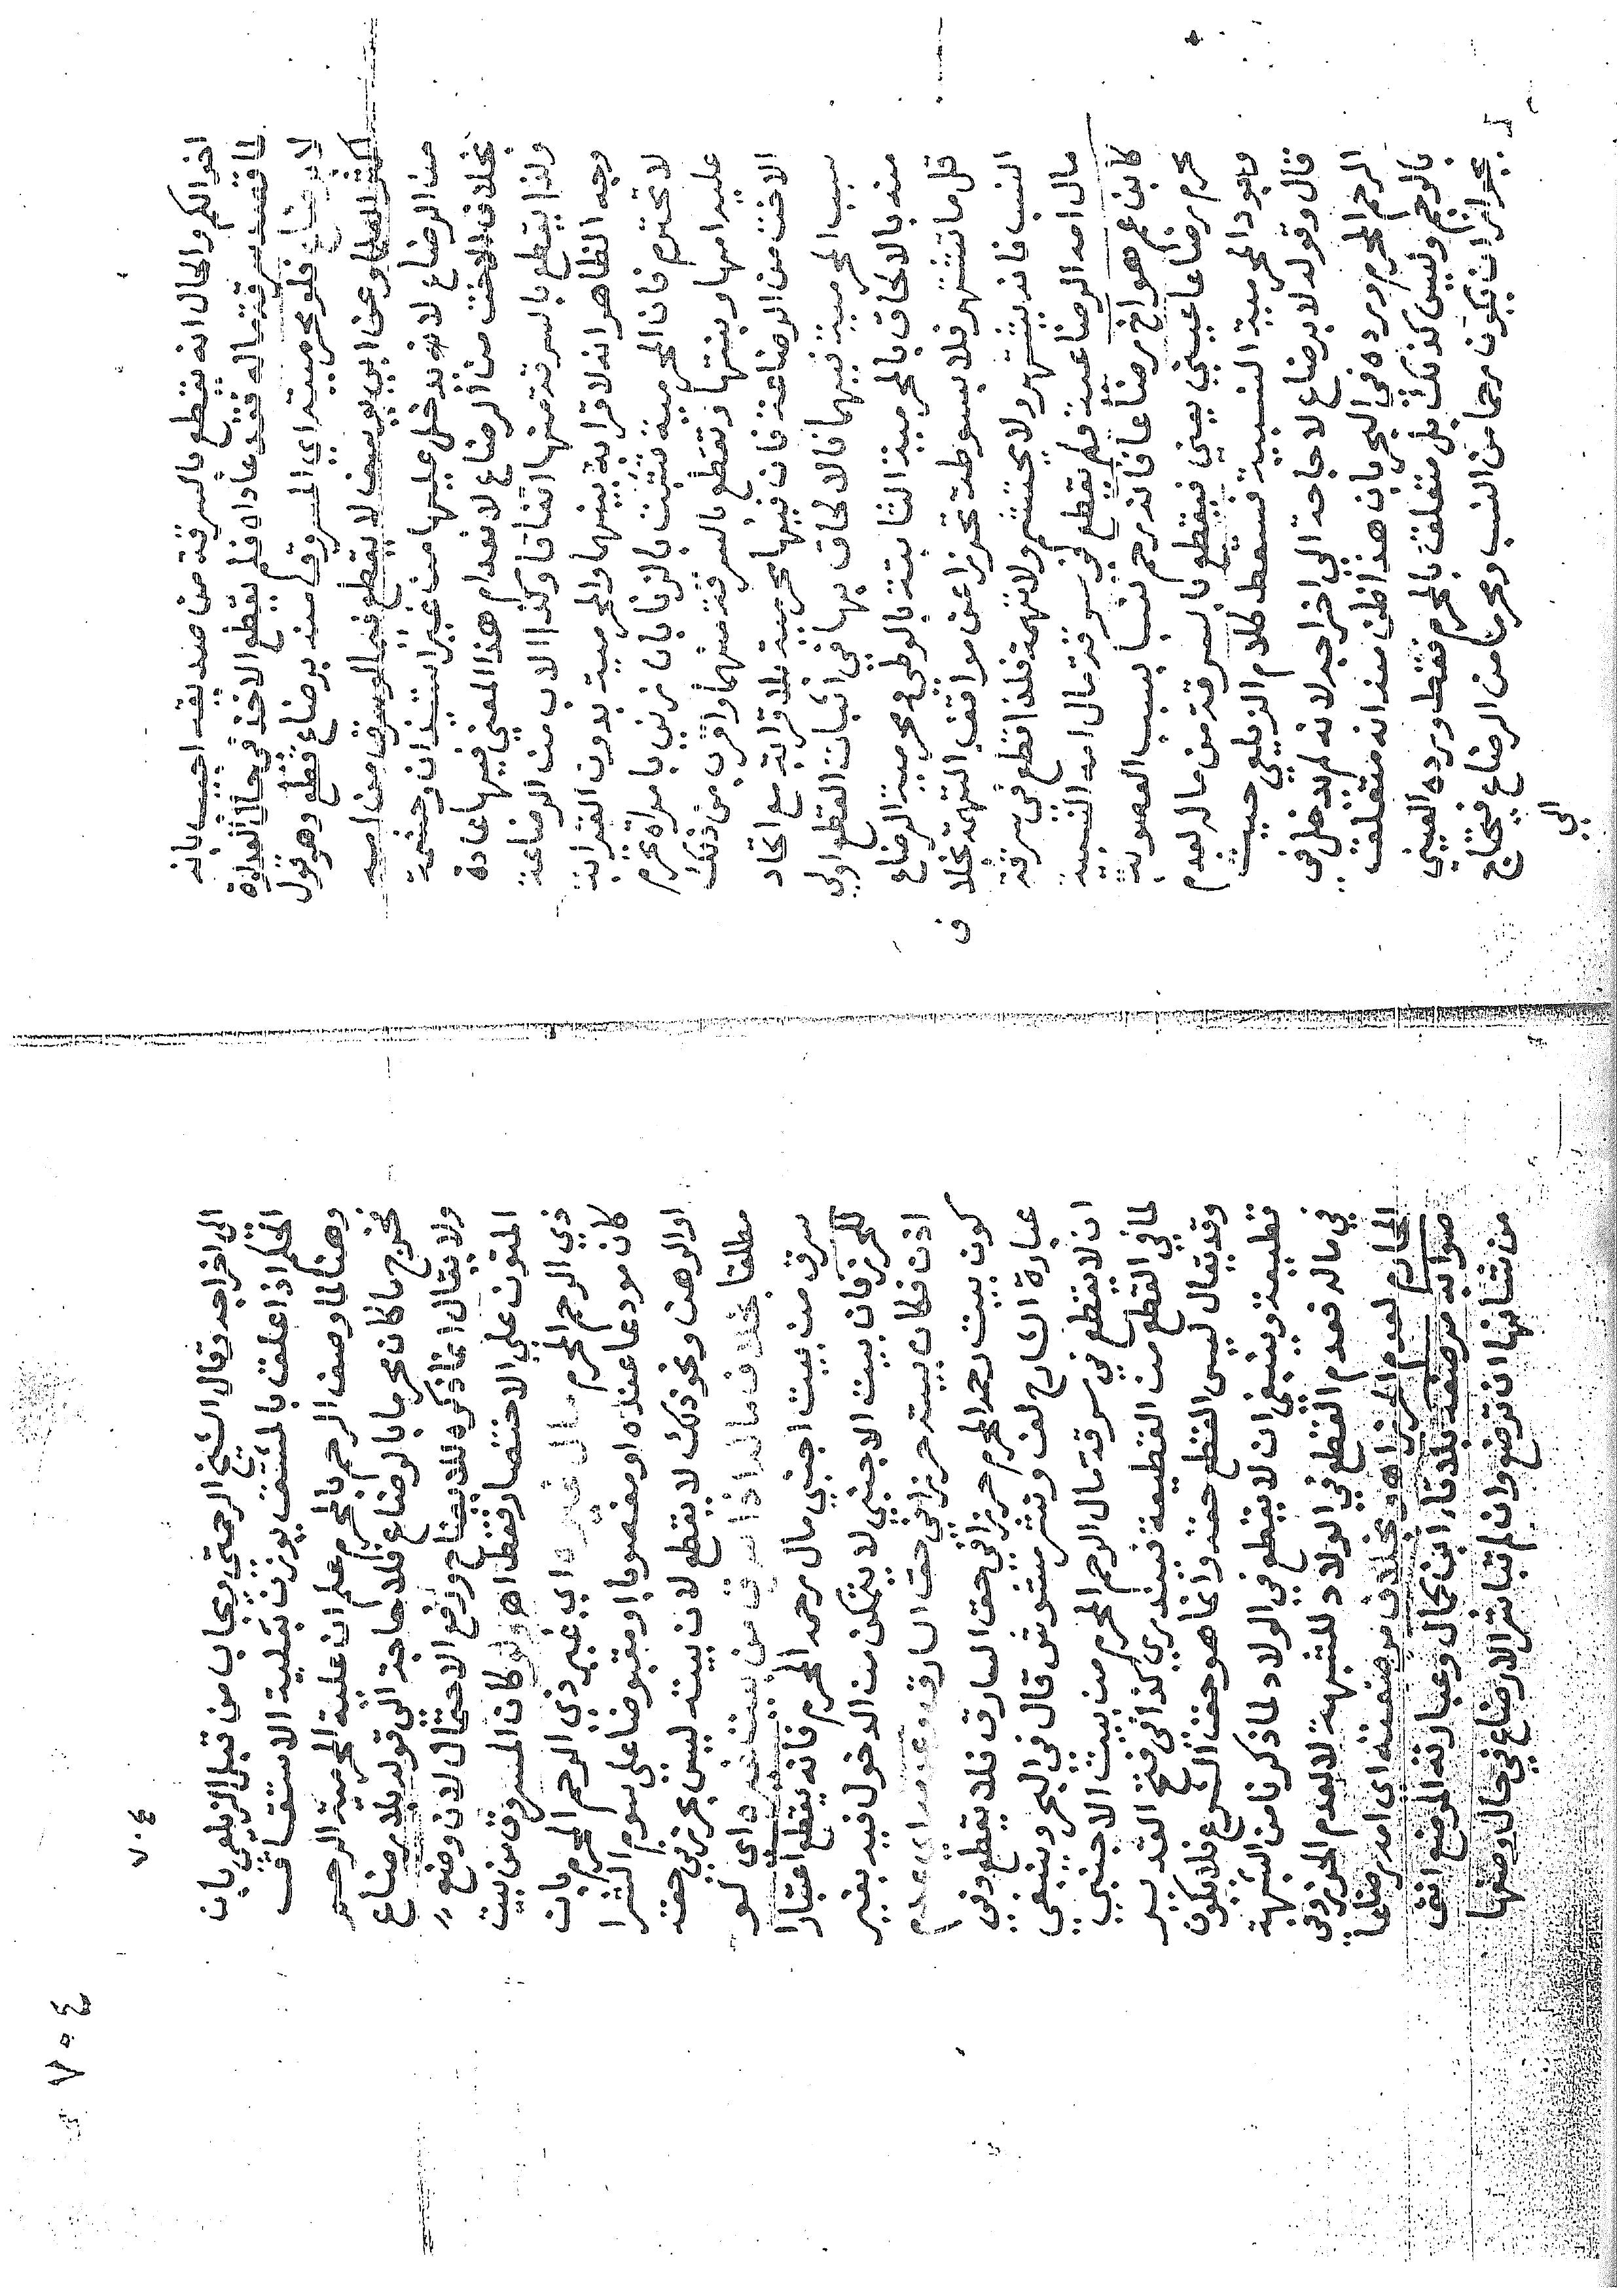 اخوالكم والحال انه يقطع بالسرقة من صديقه اجيب بانه
لما قصد سرقة ماله فقد عاداه فلم يقع الاخذ في حال الصداقة
لا برضاع فلو محرميته اي المسروق منه برضاع قطع وهو قول
اكثر العلما وعن ابي يوسف لا يقطع فيما لو سرق من امه
من الرضاع لانه يدخل عليها من غير استئذان وحشمة
بخلاف الاخت من الرضاع لانعدام هذا المعنى فيها عادة
ولذا يقطع بالسرقة منها اتفاقا وكذا الاب من الرضاعة
وجه الظاهر انه لا قرابة بينهما والمحرمية بدون القرابة
لا تحترم فان المحرمية تثبت بالزنا بان زنى بامراة تحرم
عليه امها وبنتها وتقطع بالسرقة منهما واقرب من ذلك
الاخت من الرضاعة فان فيها محرمية بلا قرابة مع اتحاد
سبب المحرمية فيهما فالالحاق بها في اثبات القطع اولى
منه بالالحاق بالمحرمية الثابتة بالوطئ ومحرمية الرضاع
قل ما تشتهر فلا بسوطة تحرزا عن مواقف التهمة بخلاف
النسب فانه يشتهر ولا يحتشم ولا تهمة فلذا قطع في سرقة
مال امه الرضاعية ولم يقطع في سرقة مال امه النسبية
كابن عم هو اخ رضاعا فانه رحم نسبا بسبب العصوبة
محرم رضاعا عيني يعني فيقطع بالسرقة من ماله لعدم
وجود المحرمية النسبية فسقط كلام الزيلعي حيث
قال وقوله لا برضاع لا حاجة الى اخراجه لانه لم يدخل في
الرحم المحرم ورده في البحر بان هذا ظن منه انه متعلق
بالرحم وليس كذلك بل متعلق بالمحرم فقط ورده العيني
بجواز ان يكون رحما من النسب ومحرما من الرضاع فيحتاج
الى
٧٠٤
٧٠٤
الى اخراجه وقال الشيخ الرحمتي يجاب من قبل الزيلعي بان
الحكم اذا علق بالمشتق يوذن بعلية الاشتقاق
وهنا لما وصف الرحم بالمحرم علم ان علية المحرمية الرحم
فخرج ما كان محرما بالرضاع فلا حاجة الى قوله بلا رضاع
ولا يقال انما ذكره للايضاح ورفع الاحتمال لان وضع
المتون على الاختصار فقط اهـ ولو كان المسروق من بيت
ذي الرحم المحرم مال غيره اي غير ذي الرحم المحرم بان
كان مودعا عنده او مغصوبا او مقبوضا على سوم الشرا
او الرهن ونحو ذلك لا يقطع لان بيته ليس بحرز في حقه
مطلقا بخلاف ماله اذا سرق من بيت غيره اي لو
سرق من بيت اجنبي مال رحمه المحرم فانه يقطع اعتبارا
للحرز فان بيت الاجنبي لا يتمكن من الدخول فيه بغير
اذن فكان بيته حرزا في حق السارق وعدمه اي عدم
كون بيت رحمه المحرم حرزا في حق السارق فلا يقطع وفي
عبارة الشارح لف ونشر مشوش قال في البحر وينبغي
ان لا يقطع في سرقة مال الرحم المحرم من بيت الاجنبي
لما في القطع من القطيعة فيندرئ كذا في فتح القدير
وقد يقال ليس القطع حقه وانما هو حق الشرع فلا يكون
قطيعة وينبغي ان لا يقطع في الولاد لما ذكرنا من الشبهة
في ماله فعدم القطع في الولاد للشبهة لا لعدم الحرز وفي
المحارم لعدم الحرز اهـ وبخلاف مرضعته اي امه رضاعا
صوابه مرضعه بلا تاء ابن كمال وعبارته المرضع التي
من شانها ان ترضع وان لم تباشر الارضاع في حال وصفها